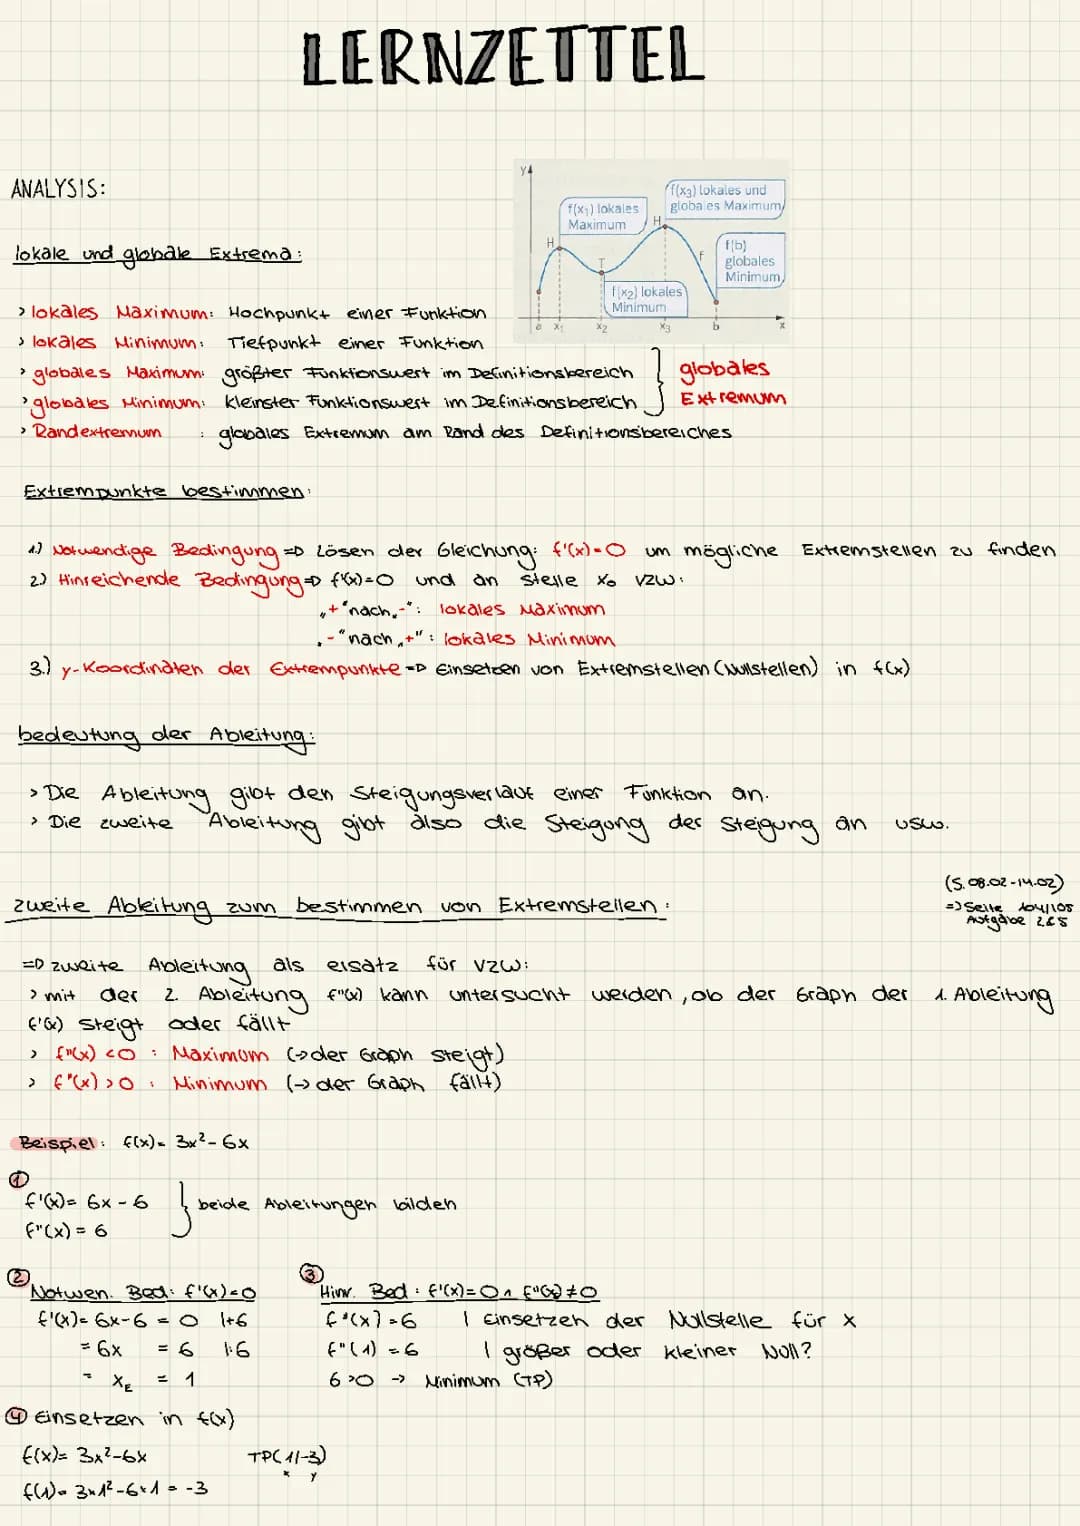 LERNZETTEL
ANALYSIS:
lokale und globale Extrema:
y
f(x₁) lokales
Maximum
f(x₃) lokales und
globales Maximum
H
H
T
f
f(b)
globales
Minimum
f(x₂) lokales
Minimum
a x₁ x₂ x₃ b x
> lokales Maximum: Hochpunkt einer Funktion
> lokales Minimum: Tiefpunkt einer Funktion
> globales Maximum: größter Funktionswert im Definitionsbereich
> globales Minimum: kleinster Funktionswert im Definitionsbereich
globales
Extremum
> Randextremum : globales Extremum am Rand des Definitionsbereiches
Extrempunkte bestimmen:
1.) Notwendige Bedingung => Lösen der Gleichung: f'(x)=0 um mögliche Extremstellen zu finden
2.) Hinreichende Bedingung => f'(x)=0 und an stelle x₀ VZW:
„+" nach „-": lokales Maximum
„-" nach „+": lokales Minimum
3.) y-Koordinaten der Extrempunkte => Einsetzen von Extremstellen (Nullstellen) in f(x)
bedeutung der Ableitung:
> Die Ableitung gibt den Steigungsverlauf einer Funktion an.
> Die zweite Ableitung gibt also die Steigung der Steigung an usw.
(S. 08.02-14.02)
=> Seite 104/105
Aufgabe 2&5
zweite Ableitung zum bestimmen von Extremstellen:
=> zweite Ableitung als ersatz für VZW:
> mit der 2. Ableitung f"(x) kann untersucht werden, ob der Graph der 1. Ableitung
f'(x) steigt oder fällt
> f"(x) <0 : Maximum (→ der Graph steigt)
> f"(x) >0 : Minimum (→ der Graph fällt)
Beispiel: f(x)= 3x²-6x
①
f'(x)= 6x-6
f"(x) = 6
beide Ableitungen bilden
②
Notwen. Bed: f'(x)=0
f'(x)= 6x-6 = 0 |+6
= 6x = 6 |:6
= x_E = 1
③
Hinr. Bed: f'(x)=0 ∧ f"(x) ≠0
f"(x) =6 | Einsetzen der Nullstelle für x
f"(1) =6 | größer oder kleiner Null?
6>0 -> Minimum (TP)
④ Einsetzen in f(x)
f(x)= 3x²-6x
TP(1/-3)
x y
f(1)= 3×1²-6×1 = -3